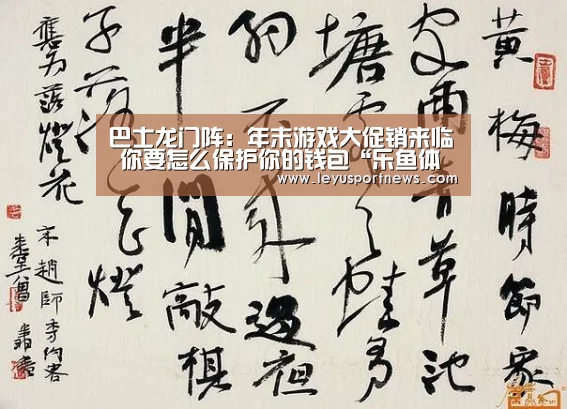 巴士龙门阵：年末游戏大促销来临
你要怎么保护你的钱包“乐鱼体
www.leyusportnews.com
黄梅時節家
家雨青草池
塘處々蛙有
約不來過夜
半閒敲棋
子落燈
落燈花
宋趙師秀約客